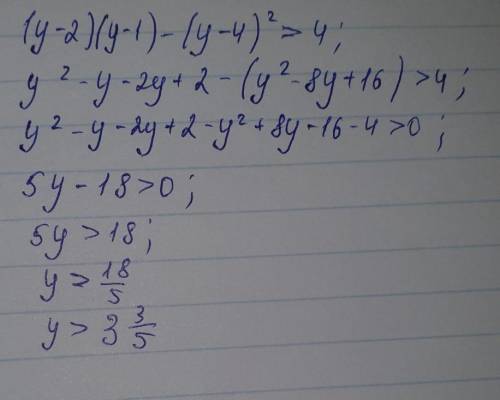 (y-2)(y-1)-(y-4)²>4;
y²-y-2y+2-(y²-8y+16)>4;
y²-y-2y+2-y²+8y-16-4>0;
5y-18>0;
5y>18;
y>18/5
y>3 3/5